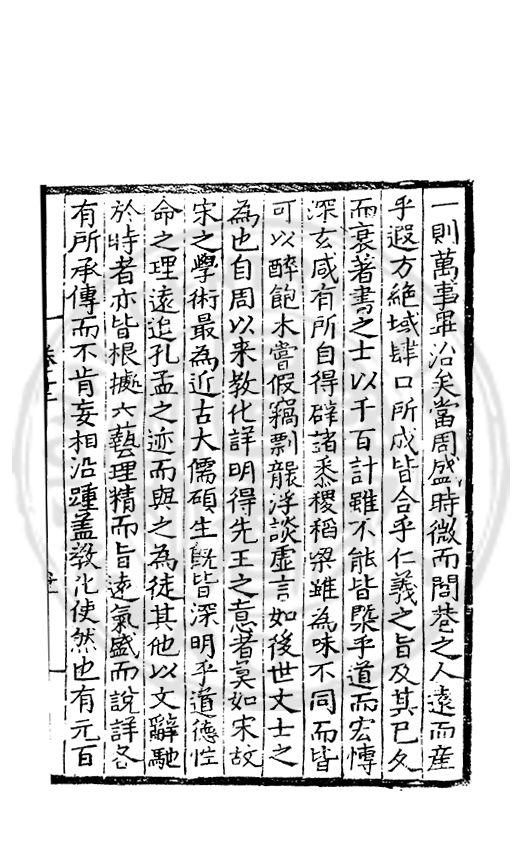 一則萬事畢治矣當周盛時微而閭巷之人遠而産
乎遐方絶域肆口所成皆合乎仁義之旨及其已久
而衰著書之士以千百計雖不能皆槩乎道而宏愽
深玄咸有所自得辟諸黍稷稻粱雖為味不同而皆
可以醉飽未嘗假竊剽龒浮談虚言如後世文士之
為也自周以来教化詳明得先王之意者莫如宋故
宋之學術最為近古大儒碩生旣皆深明乎道德性
命之理遠追孔孟之迹而與之為徒其他以文辭馳
於時者亦皆根據六藝理精而旨遠氣盛而說詳各
有所承傳而不肯妄相沿踵盖教化使然也有元百
卷十二